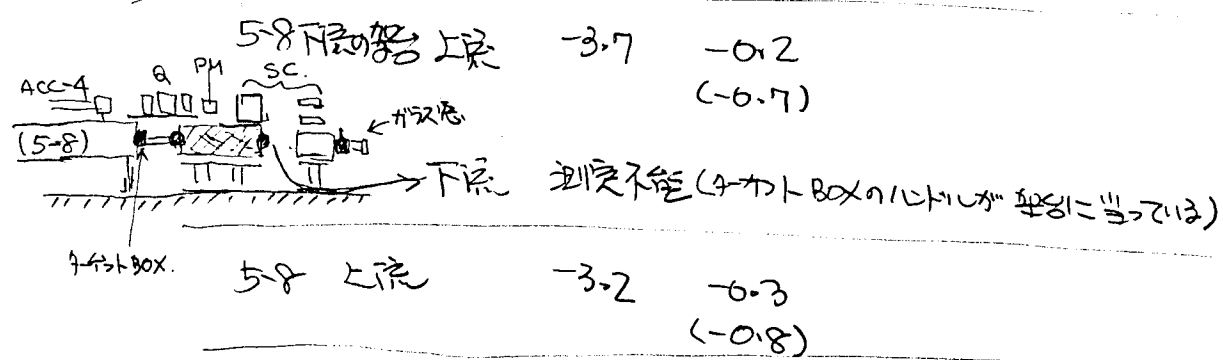 5-8下流の架台 上流 -3.7 -0.2
(-0.7)
ACC-4 Q PM SC.
(5-8)
ガラス窓
下流 測定不能(ターゲットBOXのハンドルが架台に当っている)
ターゲットBOX.
5-8 上流 -3.2 -0.3
(-0.8)